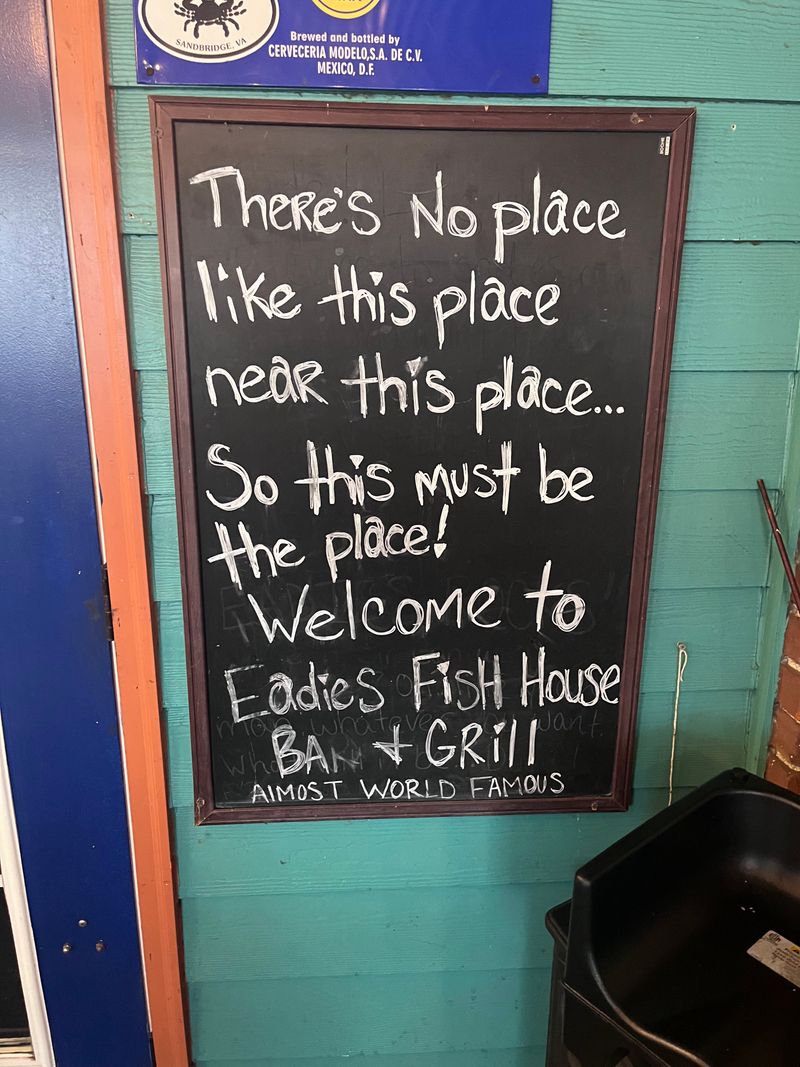 SANDBRIDGE, VA
Brewed and bottled by
CERVECERIA MODELO,S.A. DE C.V.
MEXICO, D.F.
There's No place
like this place
near this place...
So this must be
the place!
Welcome to
Eadies Fish House
BAR + GRill
AlMOST WORLD FAMOUS